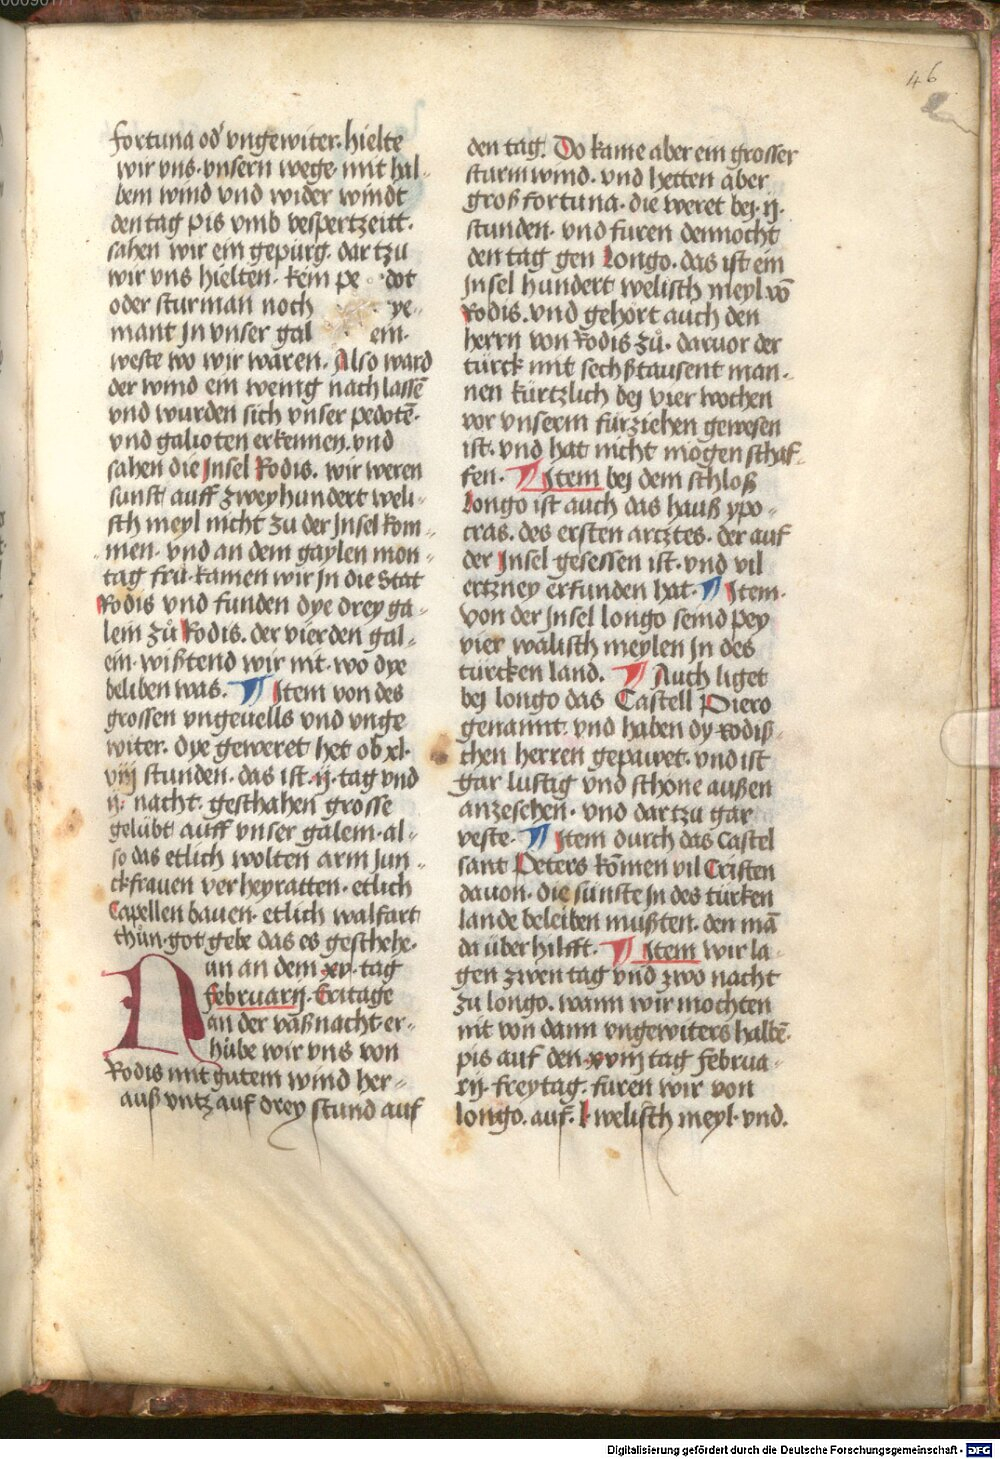 46
fortuna od' vngewiter· hielte
wir vns· vnsern wege· mit hal-
bem wind vnd wider windt
den tag pis vmb vespertzeitt·
sahen wir ein gepürg· dar tzu
wir vns hielten· kein pe dot
oder sturman noch ye-
mant jn vnser gal ein·
weste wo wir wären· Also ward
der wind ein wenig nach lassē
vnd wurden sich vnser pedotē·
vnd galioten erkennen· vnd
sahen die jnsel Rodis· wir weren
sunst auff zweyhundert weli-
sch meyl nicht zu der jnsel kom-
men· vnd an dem gaylen mon-
tag frü· kamen wir jn die Stat
Rodis vnd funden dye drey ga-
lein zů Rodis· der vierden gal-
ein· wißtend wir nit· wo dye
beliben was· ¶ Jtem von des
grossen vngeuells vnd vnge
witer· dye geweret het ob xl·
viij stunden· das ist· ij· tag vnd
ij· nacht· geschahen grosse
gelübt auff vnser galein· al-
so das etlich wolten arm jun-
ckfrauen verheyratten· etlich
Capellen bauen· etlich walfart
thůn· got gebe das es geschehe·
Nun an dem xv· tag
februarij· Eritage
an der vaßnacht· er-
hübe wir vns von
Rodis mit gutem wind her-
auß vntz auf drey stund auf
den tag· Do kame aber ein grosser
sturmwind· vnd hetten aber
groß fortuna· die weret bej· ij·
stunden· vnd furen dennocht
den tag gen Longo· das ist ein
jnsel hundert welisch meyl vō
Rodis· vnd gehört auch den
herrn von Rodis zů· daruor der
türck mit sechßtausent man-
nen kürtzlich bej vier wochen
vor vnserm fürziehen gewesen
ist· vnd hat nicht mögen schaf-
fen· ¶ Jtem bej dem schloß
Longo ist auch das hauß ypo-
cras· des ersten artztes· der auf
der jnsel gesessen ist· vnd vil
ertzney erfunden hat· ¶ Jtem·
von der jnsel longo seind pey
vier wälisch meylen jn des
türcken land· ¶ Auch liget
bej longo das Castell Piero
genannt· vnd haben dy Rodiß-
chen herren gepawet· vnd ist
gar lustig vnd schöne außen
anzesehen· vnd dartzu gar
veste· ¶ Jtem durch das Castel
sant Peters kömen vil Cristen
dauon· die sunste jn des türken
lande beleiben mußten· den mā
da überhilfft· ¶ Jtem wir la-
gen zwen tag vnd zwo nacht
zu longo· wann wir mochten
nit von dann vngewiters halbē·
pis auf den xviij tag februa-
rij· freytag· furen wir von
longo· auf· l· welisch meyl· vnd·
Digitalisierung gefördert durch die Deutsche Forschungsgemeinschaft - DFG